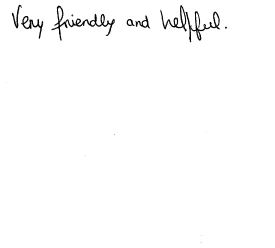 Very friendly and helpful.